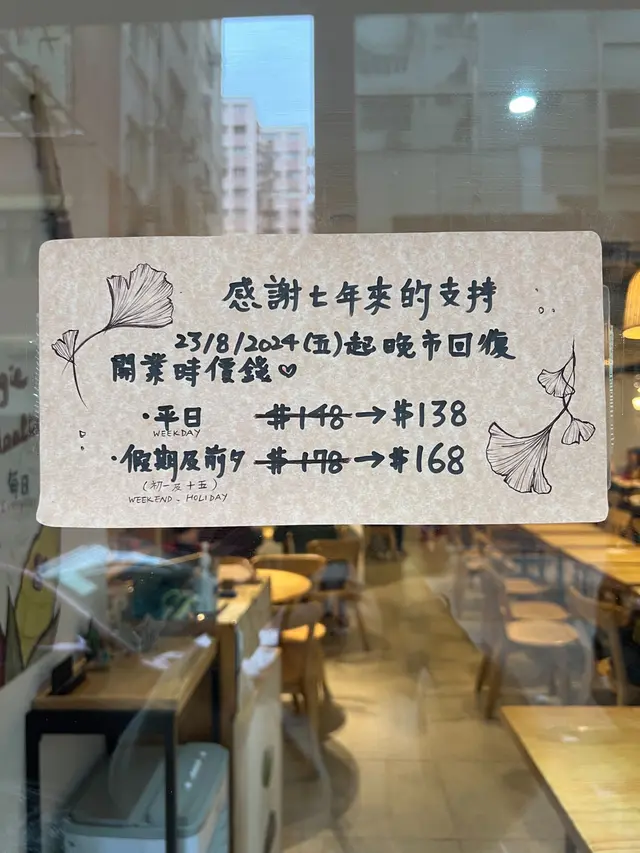 感謝七年來的支持
23/8/2024(五)起晚市回復
開業時價錢♡
·平日 $148→$138
WEEKDAY
·假期及前夕 $178→$168
(初一及十五)
WEEKEND - HOLIDAY
每日